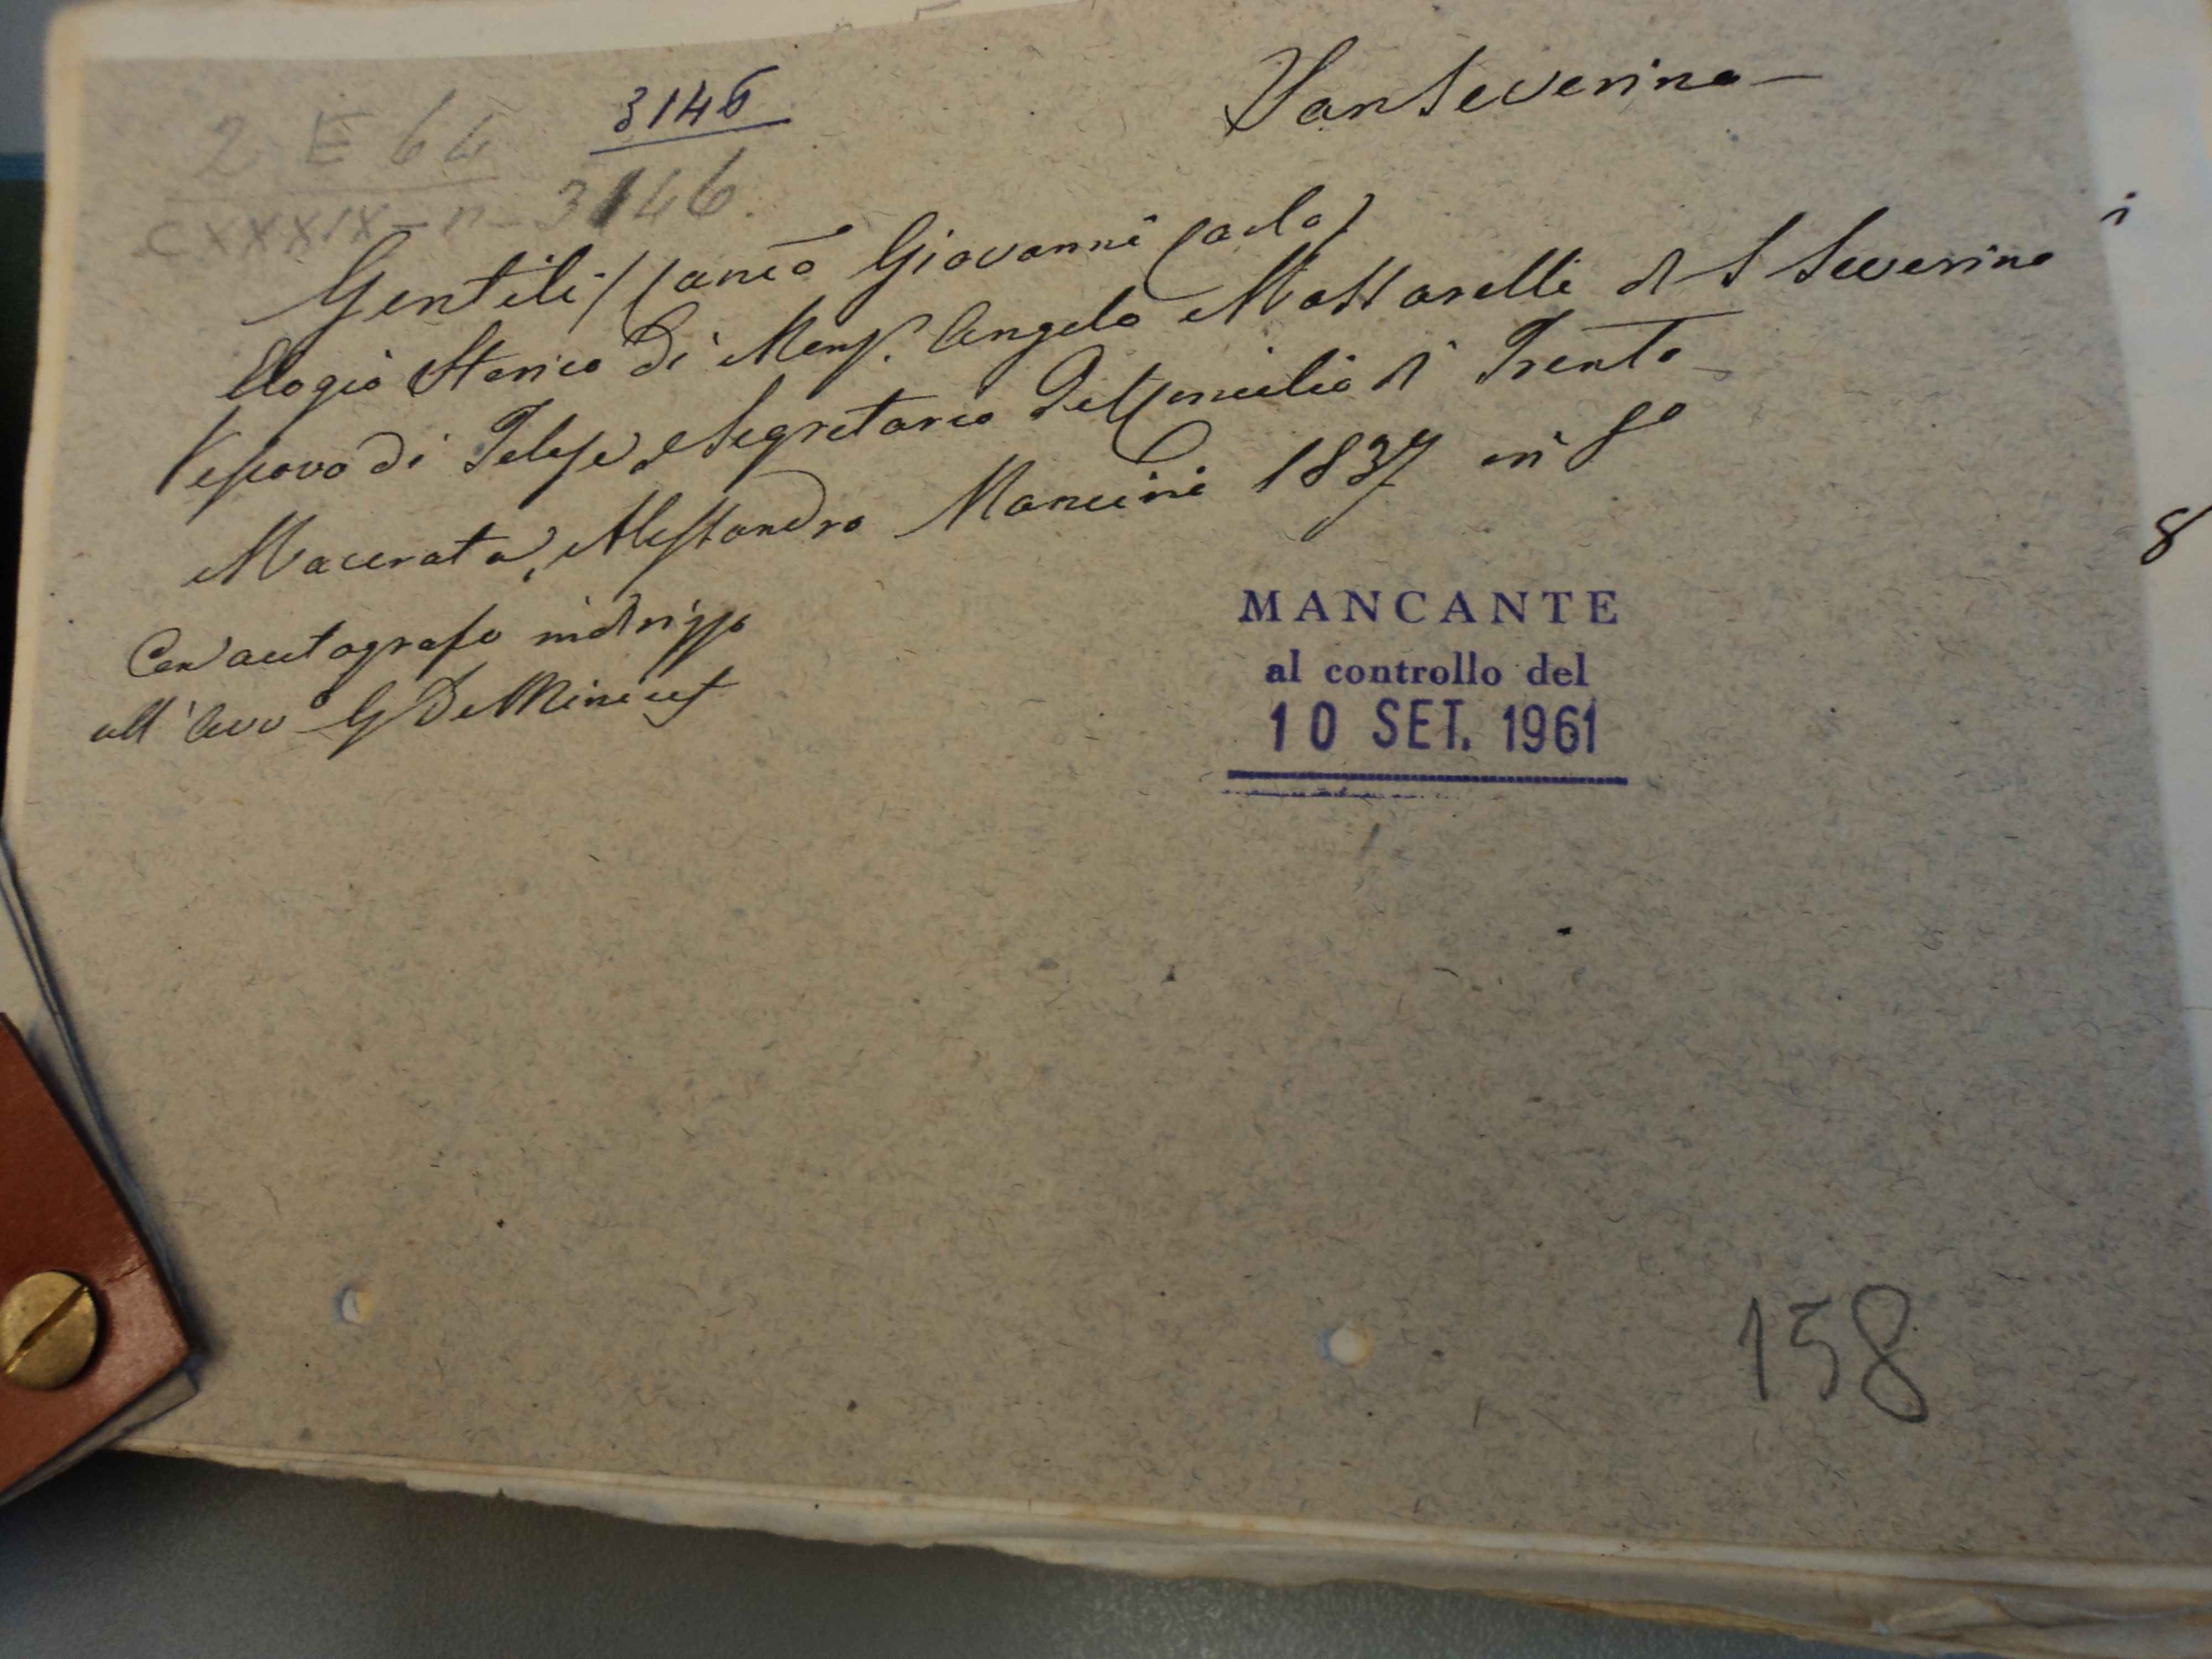 3146
Sanseverino —
2 E 64
CXXXIX - n - 3146.
Gentili (Canco Giovanni Carlo)
Elogio Storico di Mons.r Angelo Massarelli di S Severino
Vescovo di Telese, e Segretario del Concilio di Trento
Macerata, Alessandro Mancini 1837 in 8°
Con autografo indrizzo
all'Avv° G De Minicis
MANCANTE
al controllo del
10 SET. 1961
158
i
8